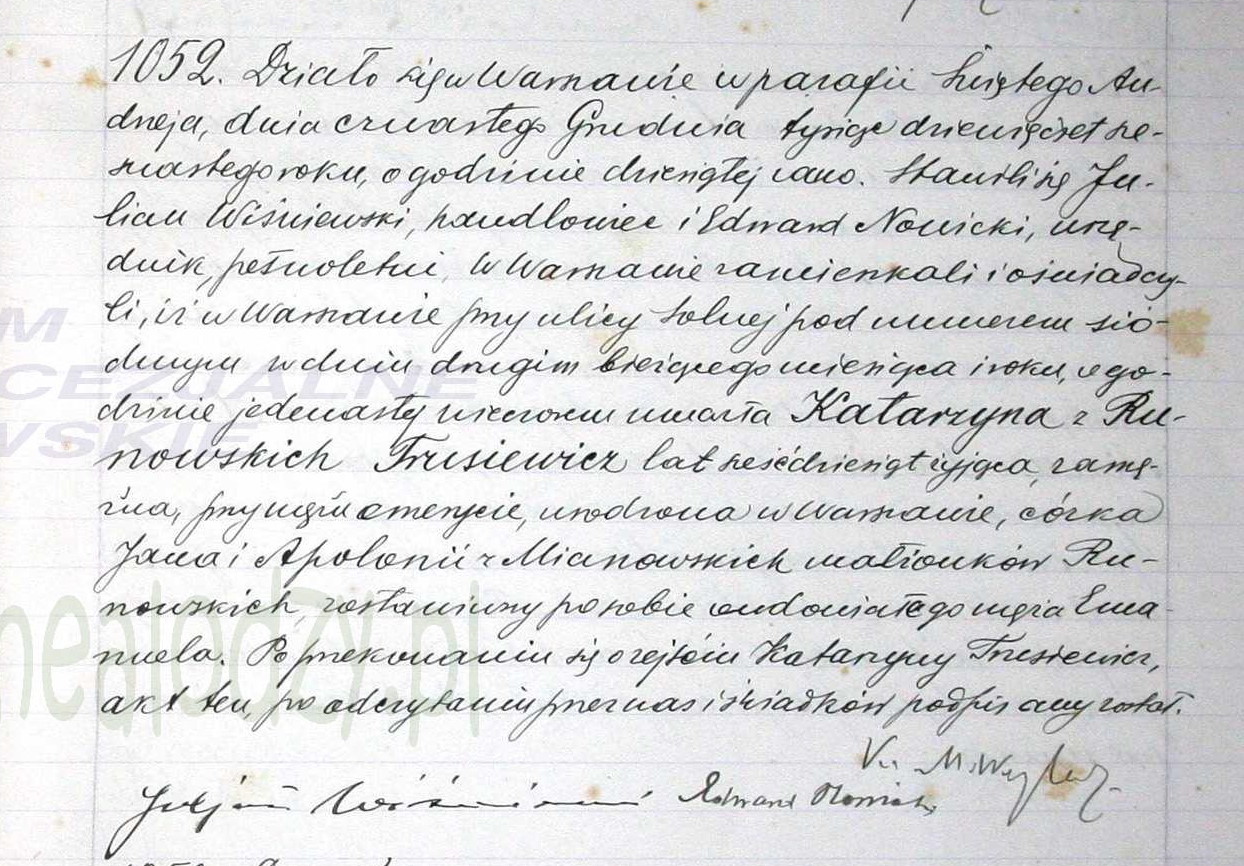 1052. Działo się w Warszawie w parafii Świętego An-
drzeja, dnia czwartego Grudnia tysiąc dziewięćset sze-
snastego roku, o godzinie dziesiątej rano. Stawili się Ju-
lian Wiśniewski, handlowiec i Edward Nowicki, urzę-
dnik, pełnoletni, w Warszawie zamieszkali i oświadczy-
li, iż w Warszawie przy ulicy Solnej pod numerem sió-
dmym w dniu drugim bieżącego miesiąca i roku, o go-
dzinie jedenastej wieczorem umarła Katarzyna z Ru-
nowskich Trusiewicz lat sześćdziesiąt żyjąca, zamę-
żna, przy mężu emerycie, urodzona w Warszawie, córka
Jana i Apolonii z Mianowskich małżonków Ru-
nowskich, zostawiwszy po sobie owdowiałego męża Ema-
nuela. Po przekonaniu się o zejściu Katarzyny Trusiewicz,
akt ten, po odczytaniu przez nas i świadków podpisany został.
Juljan Wiśniewski Edward Nowicki
M
CEZJALNE
WSKIE
nealodzy.pl